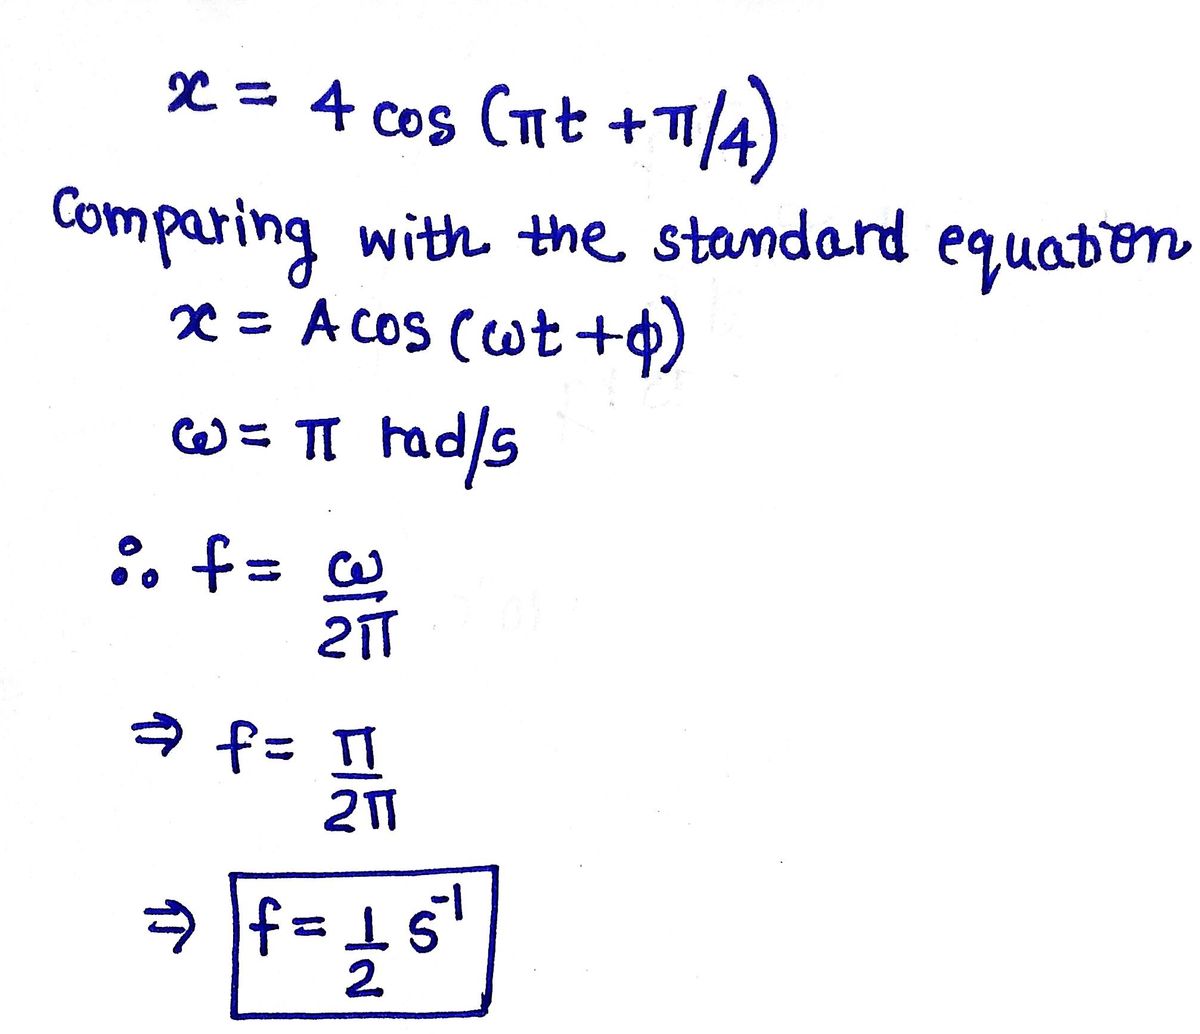 x = 4 cos (πt + π/4)
Comparing with the standard equation
x = A cos (ωt + ϕ)
ω = π rad/s
∴ f = ω/2π
⇒ f = π/2π
⇒ f = 1/2 s⁻¹